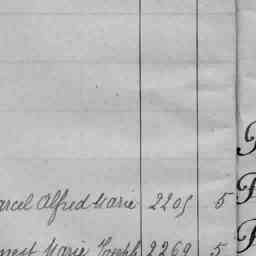 arcel Alfred Marie 2205 5
nest Marie Joseph 2269 5